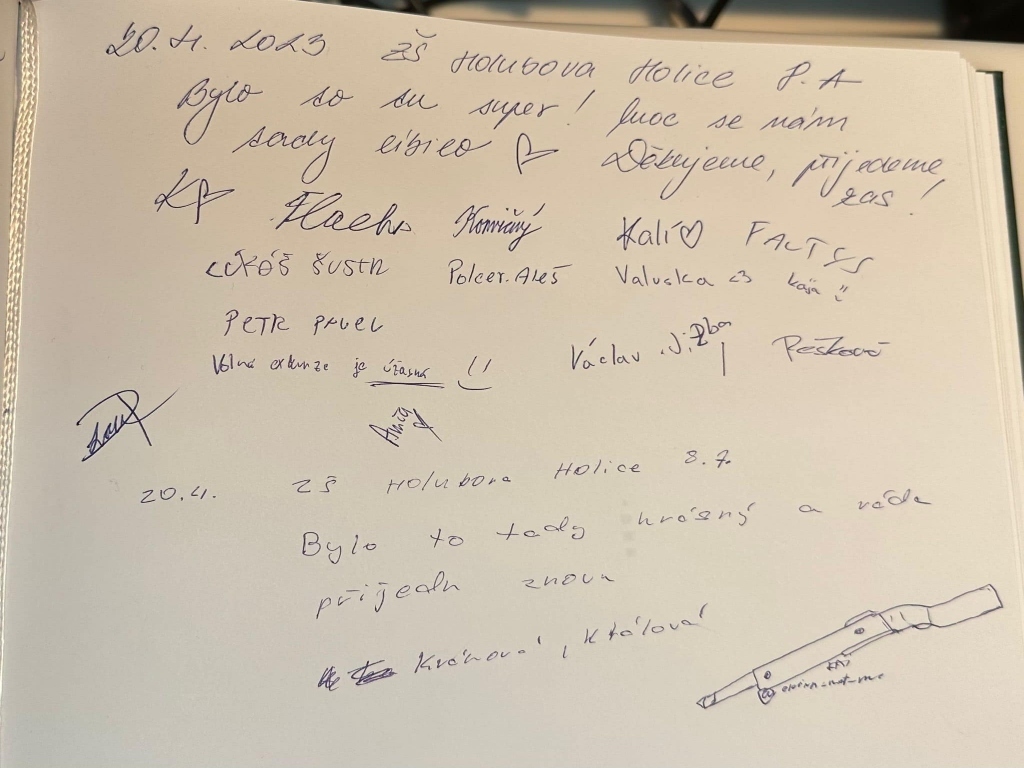 20. 4. 2023 ZŠ Holubova Holice 8. A
Bylo to tu super! Moc se nám
tady líbilo Děkujeme, přijedeme
zas!
Konvičný Kalí♡ FACTSS
LUKÁŠ ŠUSTR Polcer. Aleš Valuska <3 Kája
PETR PAVEL
Volná exkurze je úžasná Václav Jizba Pešková
20.4. ZŠ Holubova Holice 8. A
Bylo to tady krásný a ráda
přijedu znova
Králová